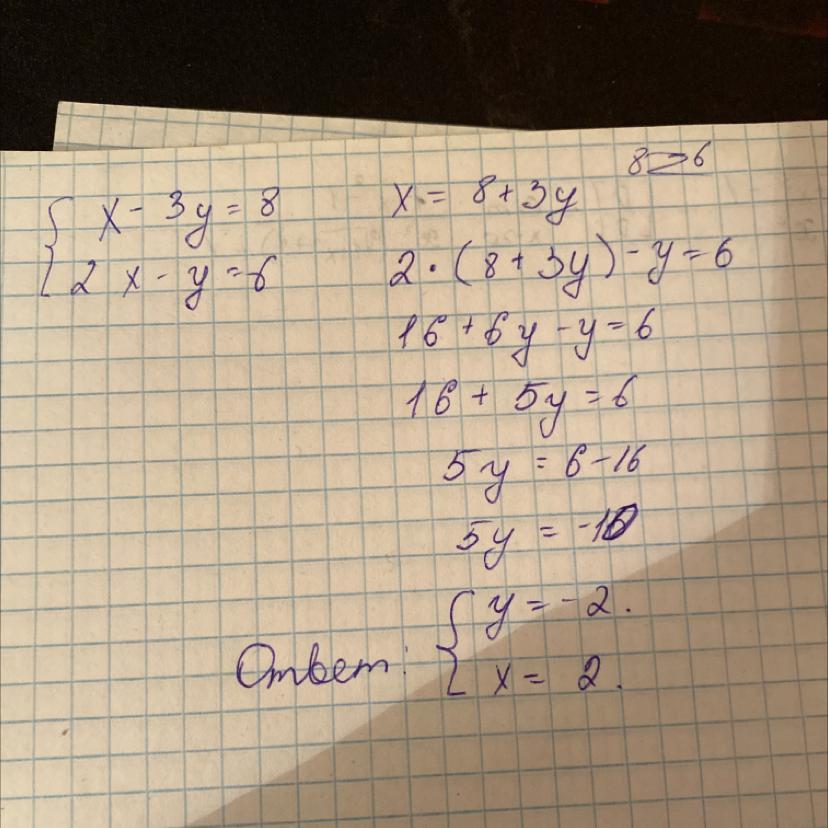 8 - 6
{ x - 3y = 8
2x - y = 6
x = 8 + 3y
2 · (8 + 3y) - y = 6
16 + 6y - y = 6
16 + 5y = 6
5y = 6 - 16
5y = -10
Ответ: { y = -2.
x = 2.